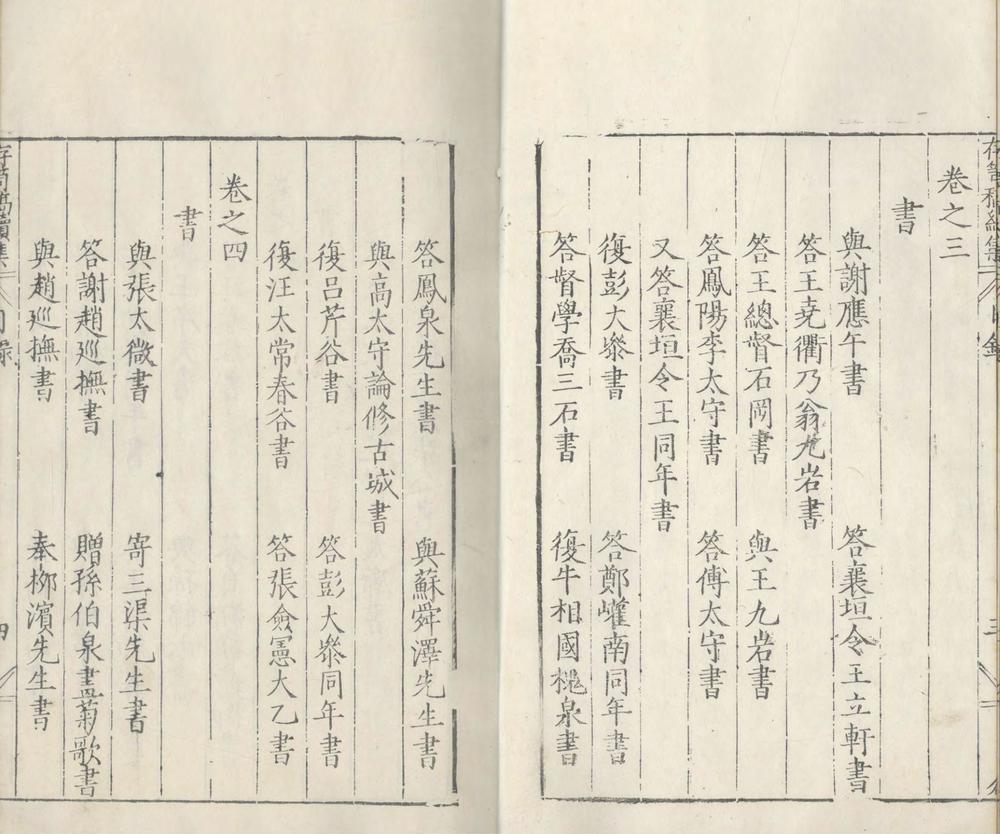 存笥稿續集 目錄 三
卷之三
書
與謝應午書 答襄垣令王立軒書
答王堯衢乃翁九岩書
答王總督石岡書 與王九岩書
答鳳陽李太守書 答傅太守書
又答襄垣令王同年書
復彭大叅書 答鄭㠇南同年書
答督學喬三石書 復牛相國桃泉書
答鳳泉先生書 與蘇舜澤先生書
與高太守論修古城書
復呂芹谷書 答彭大叅同年書
復汪太常春谷書 答張僉憲大乙書
卷之四
書
與張太微書 寄三渠先生書
答謝趙巡撫書 贈孫伯泉畫菊歌書
與趙巡撫書 奉栁濱先生書
存笥稿續集 目錄 四